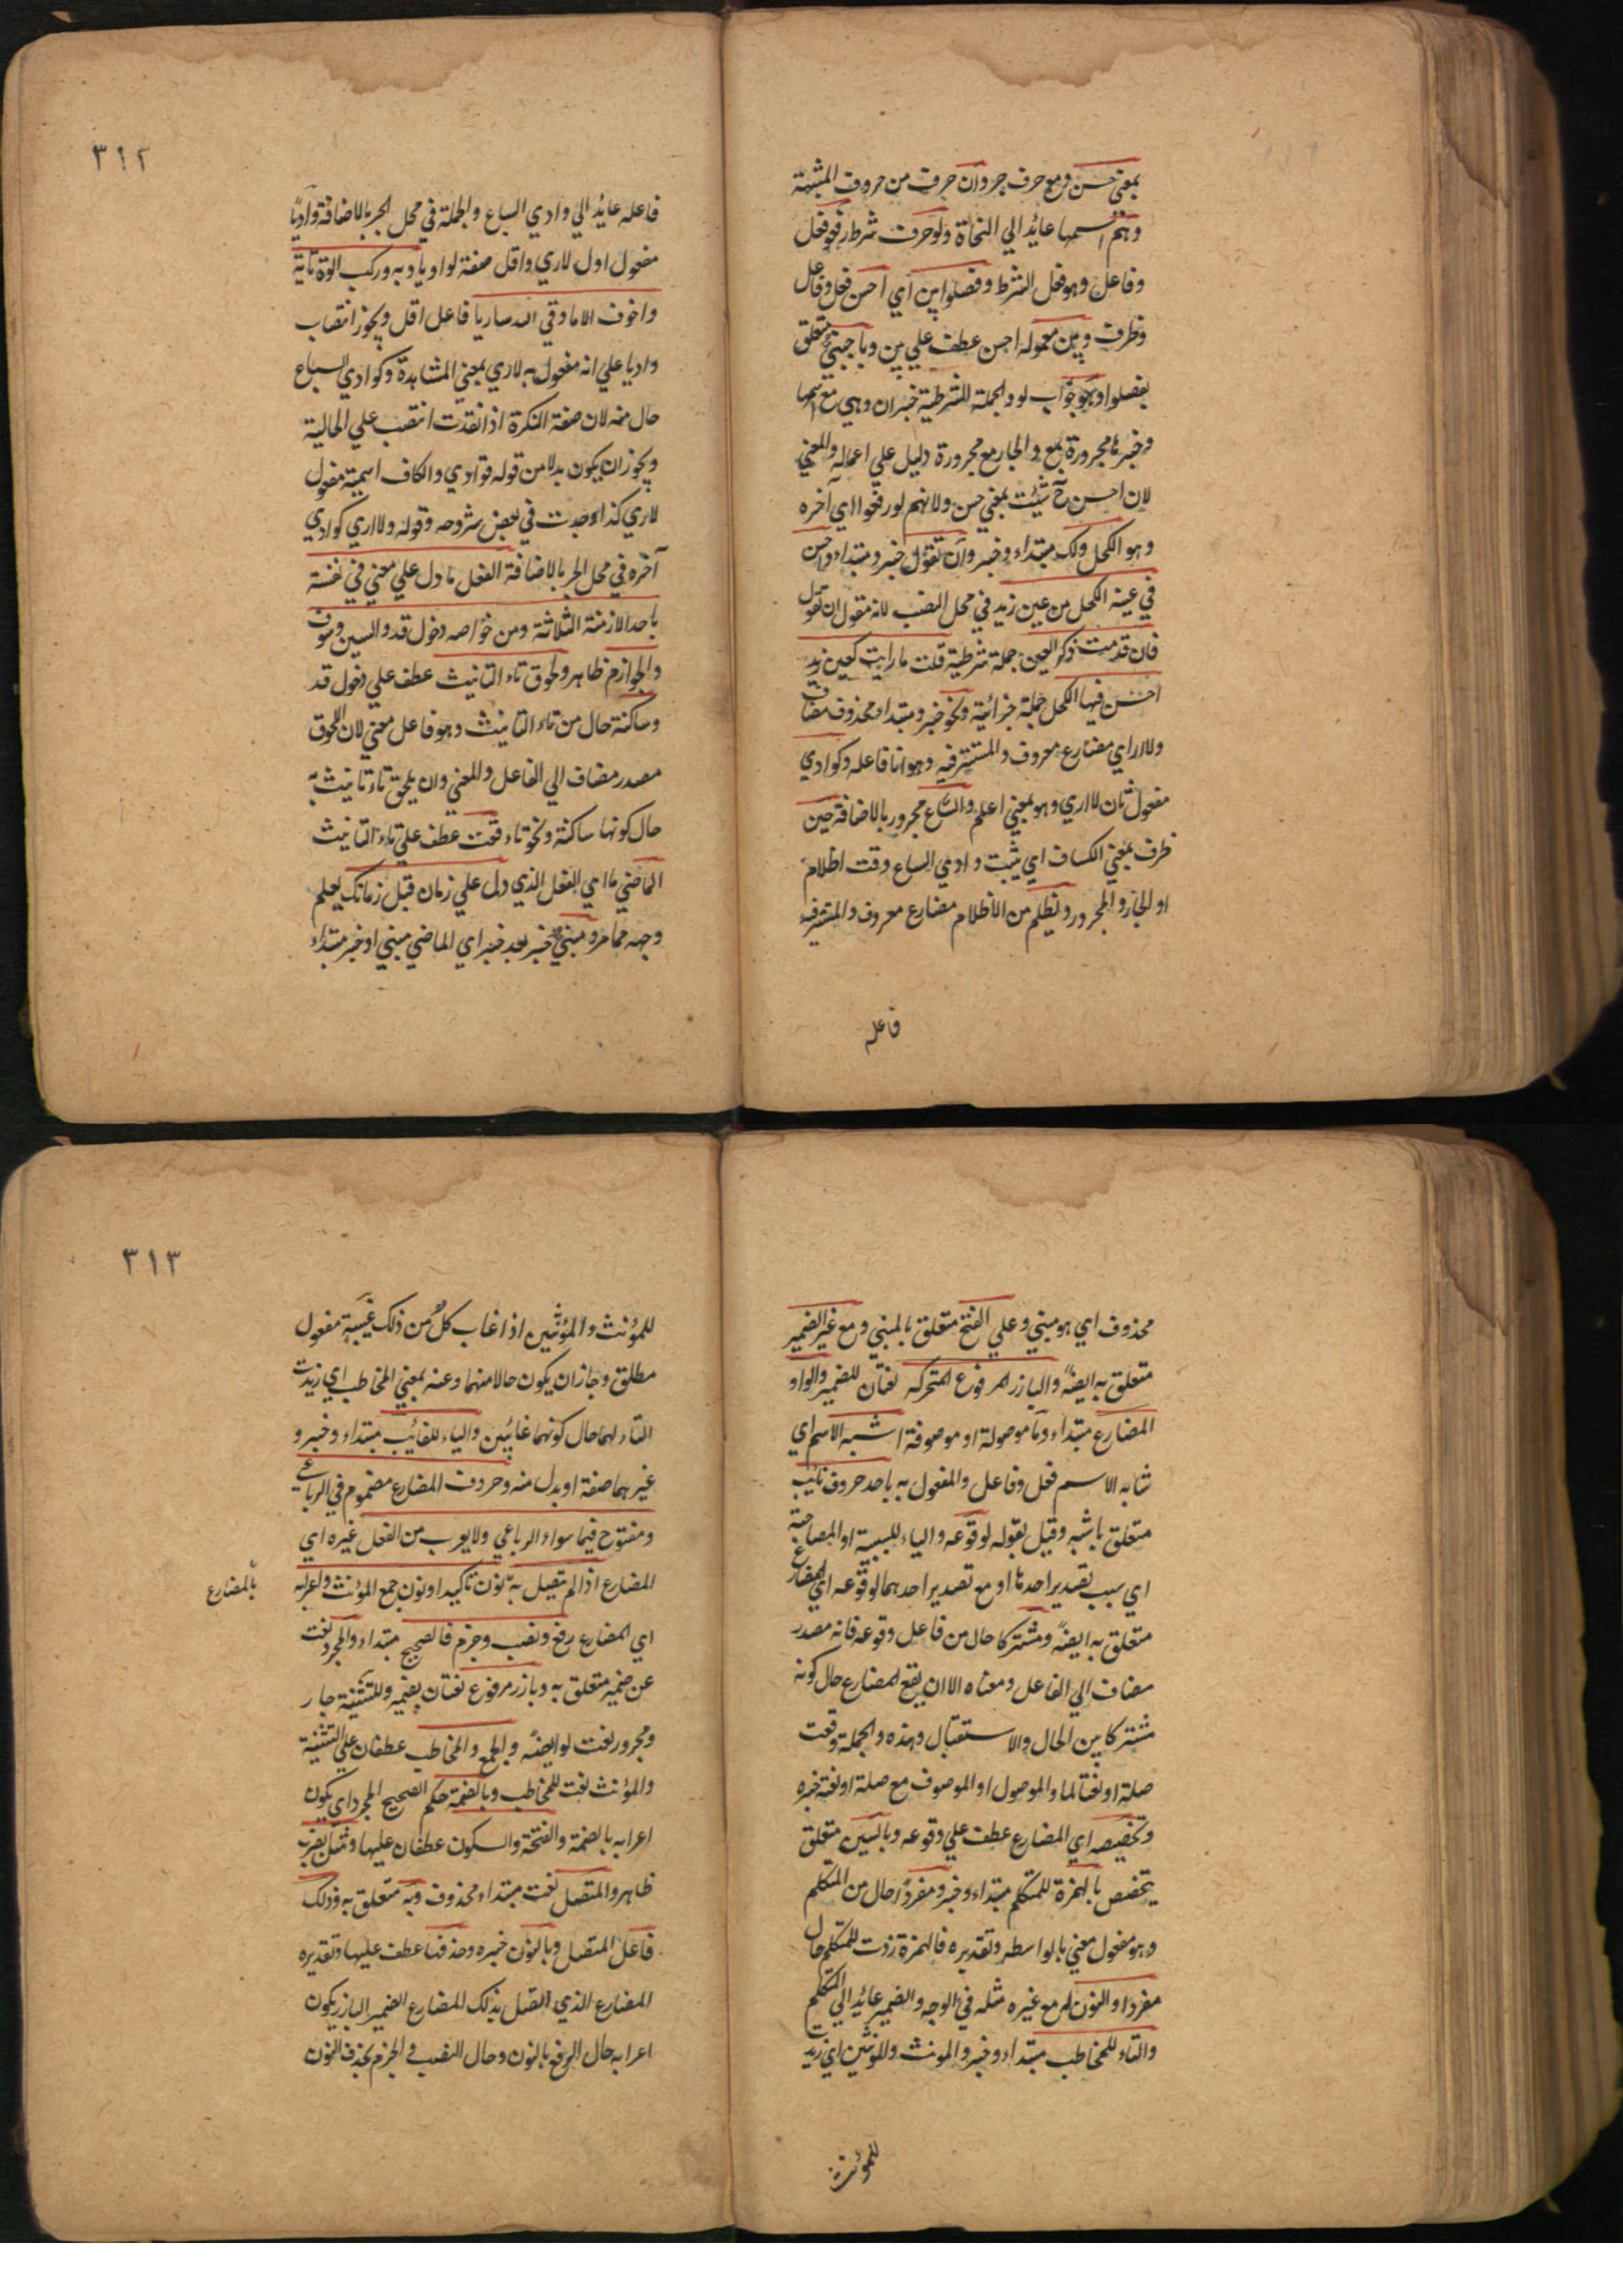 بمعني حسن ومع حرف جر وان حرف من حروف المشبهة
وهم اسمها عائد الي النحاة ولو حرف شرط رفعوا فعل
وفاعل وهو فعل الشرط وفصلوا بين اي احسن فعل وفاعل
وظرف وبين معموله احسن عطف علي بين وباجنبي متعلق
بفصلوا وهو جواب لو والجملة الشرطية خبر ان وهي مع اسمها
وخبرها مجرورة بمع والجار مع مجروره دليل علي اعماله والمعني
لان احسن ح يثبت بمعني حسن ولانهم لو رفعوا اي آخره
وهو الكحل ولك مبتداء وخبر وان تقول خبر ومبتداء واحسن
في عينه الكحل من عين زيد في محل النصب لانه مقول ان تقول
فان قدمت ذكر العين جملة شرطية قلت ما رايت كعين زيد
احسن فيها الكحل جملة جزائية ونحو خبر ومبتداء محذوف مضاف
ولا اراي مضارع معروف والمستتر فيه وهو انا فاعله وكوادي
مفعول ثان لا اري وهو بمعني اعلم والسباع مجرور بالاضافة حين
ظرف بمعني الكاف اي يثبت وادي السباع وقت اظلام
او الجار والمجرور ويظلم من الاظلام مضارع معروف والمستتر فيه
فاعله
٣١٢
فاعله عائد الي وادي السباع والجملة في محل الجر بالاضافة واديا
مفعول اول لاري واقل صفة لواديا وبه وركب اتوه تاية
واخوف الا ما وقي الله ساريا فاعل اقل ويجوز انتصاب
واديا علي انه مفعول به لاري بمعني المشاهدة وكوادي السباع
حال منه لان صفة النكرة اذا تقدمت انتصب علي الحالية
ويجوز ان يكون بدلا من قوله قوادي والكاف اسمية مفعول
لاري كذا وجدت في بعض شروحه وقوله ولا اري كوادي
آخره في محل الجر بالاضافة الفعل ما دل علي معني في نفسه
باحد الازمنة الثلاثة ومن خواصه دخول قد والسين وسوف
والجوازم ظاهر ولحوق تاء التانيث عطف علي دخول قد
وساكنة حال من تاء التانيث وهو فاعل معني لان اللحوق
مصدر مضاف الي الفاعل والمعني وان يلحق تاء تانيث به
حال كونها ساكنة ونحو تاء فعلت عطف علي تاء التانيث
الماضي ما اي الفعل الذي دل علي زمان قبل زمانك يعلم
وجهه مما مر ومبني خبر بعد خبر اي الماضي مبني او خبر مبتداء
محذوف اي هو مبني وعلي الفتح متعلق بالمبني ومع غير الضمير
متعلق به ايضا والبارز المرفوع المتحركه نعتان للضمير والواو
المضارع مبتداء وما موصولة او موصوفة اشبه الاسم اي
شابه الاسم فعل وفاعل والمفعول به باحد حروف نايت
متعلق باشبه وقيل بقوله لوقوعه والباء للسببية او المصاحبة
اي بسبب تصدير احدها او مع تصدير احدهما لوقوعه اي المضارع
متعلق به ايضا ومشتركا حال من فاعل وقوعه فانه مصدر
مضاف الي الفاعل ومعناه الا ان يقع المضارع حال كونه
مشتركا بين الحال والاستقبال وهذه والجملة وقعت
صلة او نعتا لما والموصول او الموصوف مع صلة او نعته خبره
وتخصيصه اي المضارع عطف علي وقوعه وبالسين متعلق
بتخصيص بالهمزة للمتكلم مبتداء وخبر ومفردا حال من المتكلم
وهو مفعول معني بالواسطة وتقديره فالهمزة زدت للمتكلم حال
مفردا والنون له مع غيره مثله في الوجه والضمير عائد الي المتكلم
والتاء للمخاطب مبتداء وخبر والمونث وللمونثين اي زيدت
للمؤنث
٣١٣
للمؤنث والمؤنثين اذا غاب كل من ذلك غيبة مفعول
مطلق وجاز ان يكون حالا منهما وعنه بمعني المخاطب اي زيدت
التاء لهما حال كونهما غائبين والياء للغائيب مبتداء وخبر و
غيرهما صفة او بدل منه وحروف المضارع مضموم في الرباعي
ومفتوح فيما سواء الرباعي ولا يعرب من الفعل غيره اي
المضارع اذا لم يتصل به نون تاكيد او نون جمع المؤنث واعرابه
بالمضارع
اي المضارع رفع ونصب وجزم فالصحيح مبتداء والمجرد نعت
عن ضمير متعلق به وبارز مرفوع نعتان بضمير وللتثنية جار
ومجرور نعت له ايضا والجمع والمخاطب عطفان علي التثنية
والمؤنث نعت للمخاطب وبالضمة حكم الصحيح المجرد اي يكون
اعرابه بالضمة والفتحة والسكون عطفان عليها ومثل يضرب
ظاهر والمتصل نعت مبتداء محذوف وبه متعلق به وذلك
فاعل المتصل وبالنون خبره وحذفها عطف عليها وتقديره
المضارع الذي اتصل بذلك المضارع الضمير البارز يكون
اعرابه حال الرفع بالنون وحال النصب والجزم بحذف النون